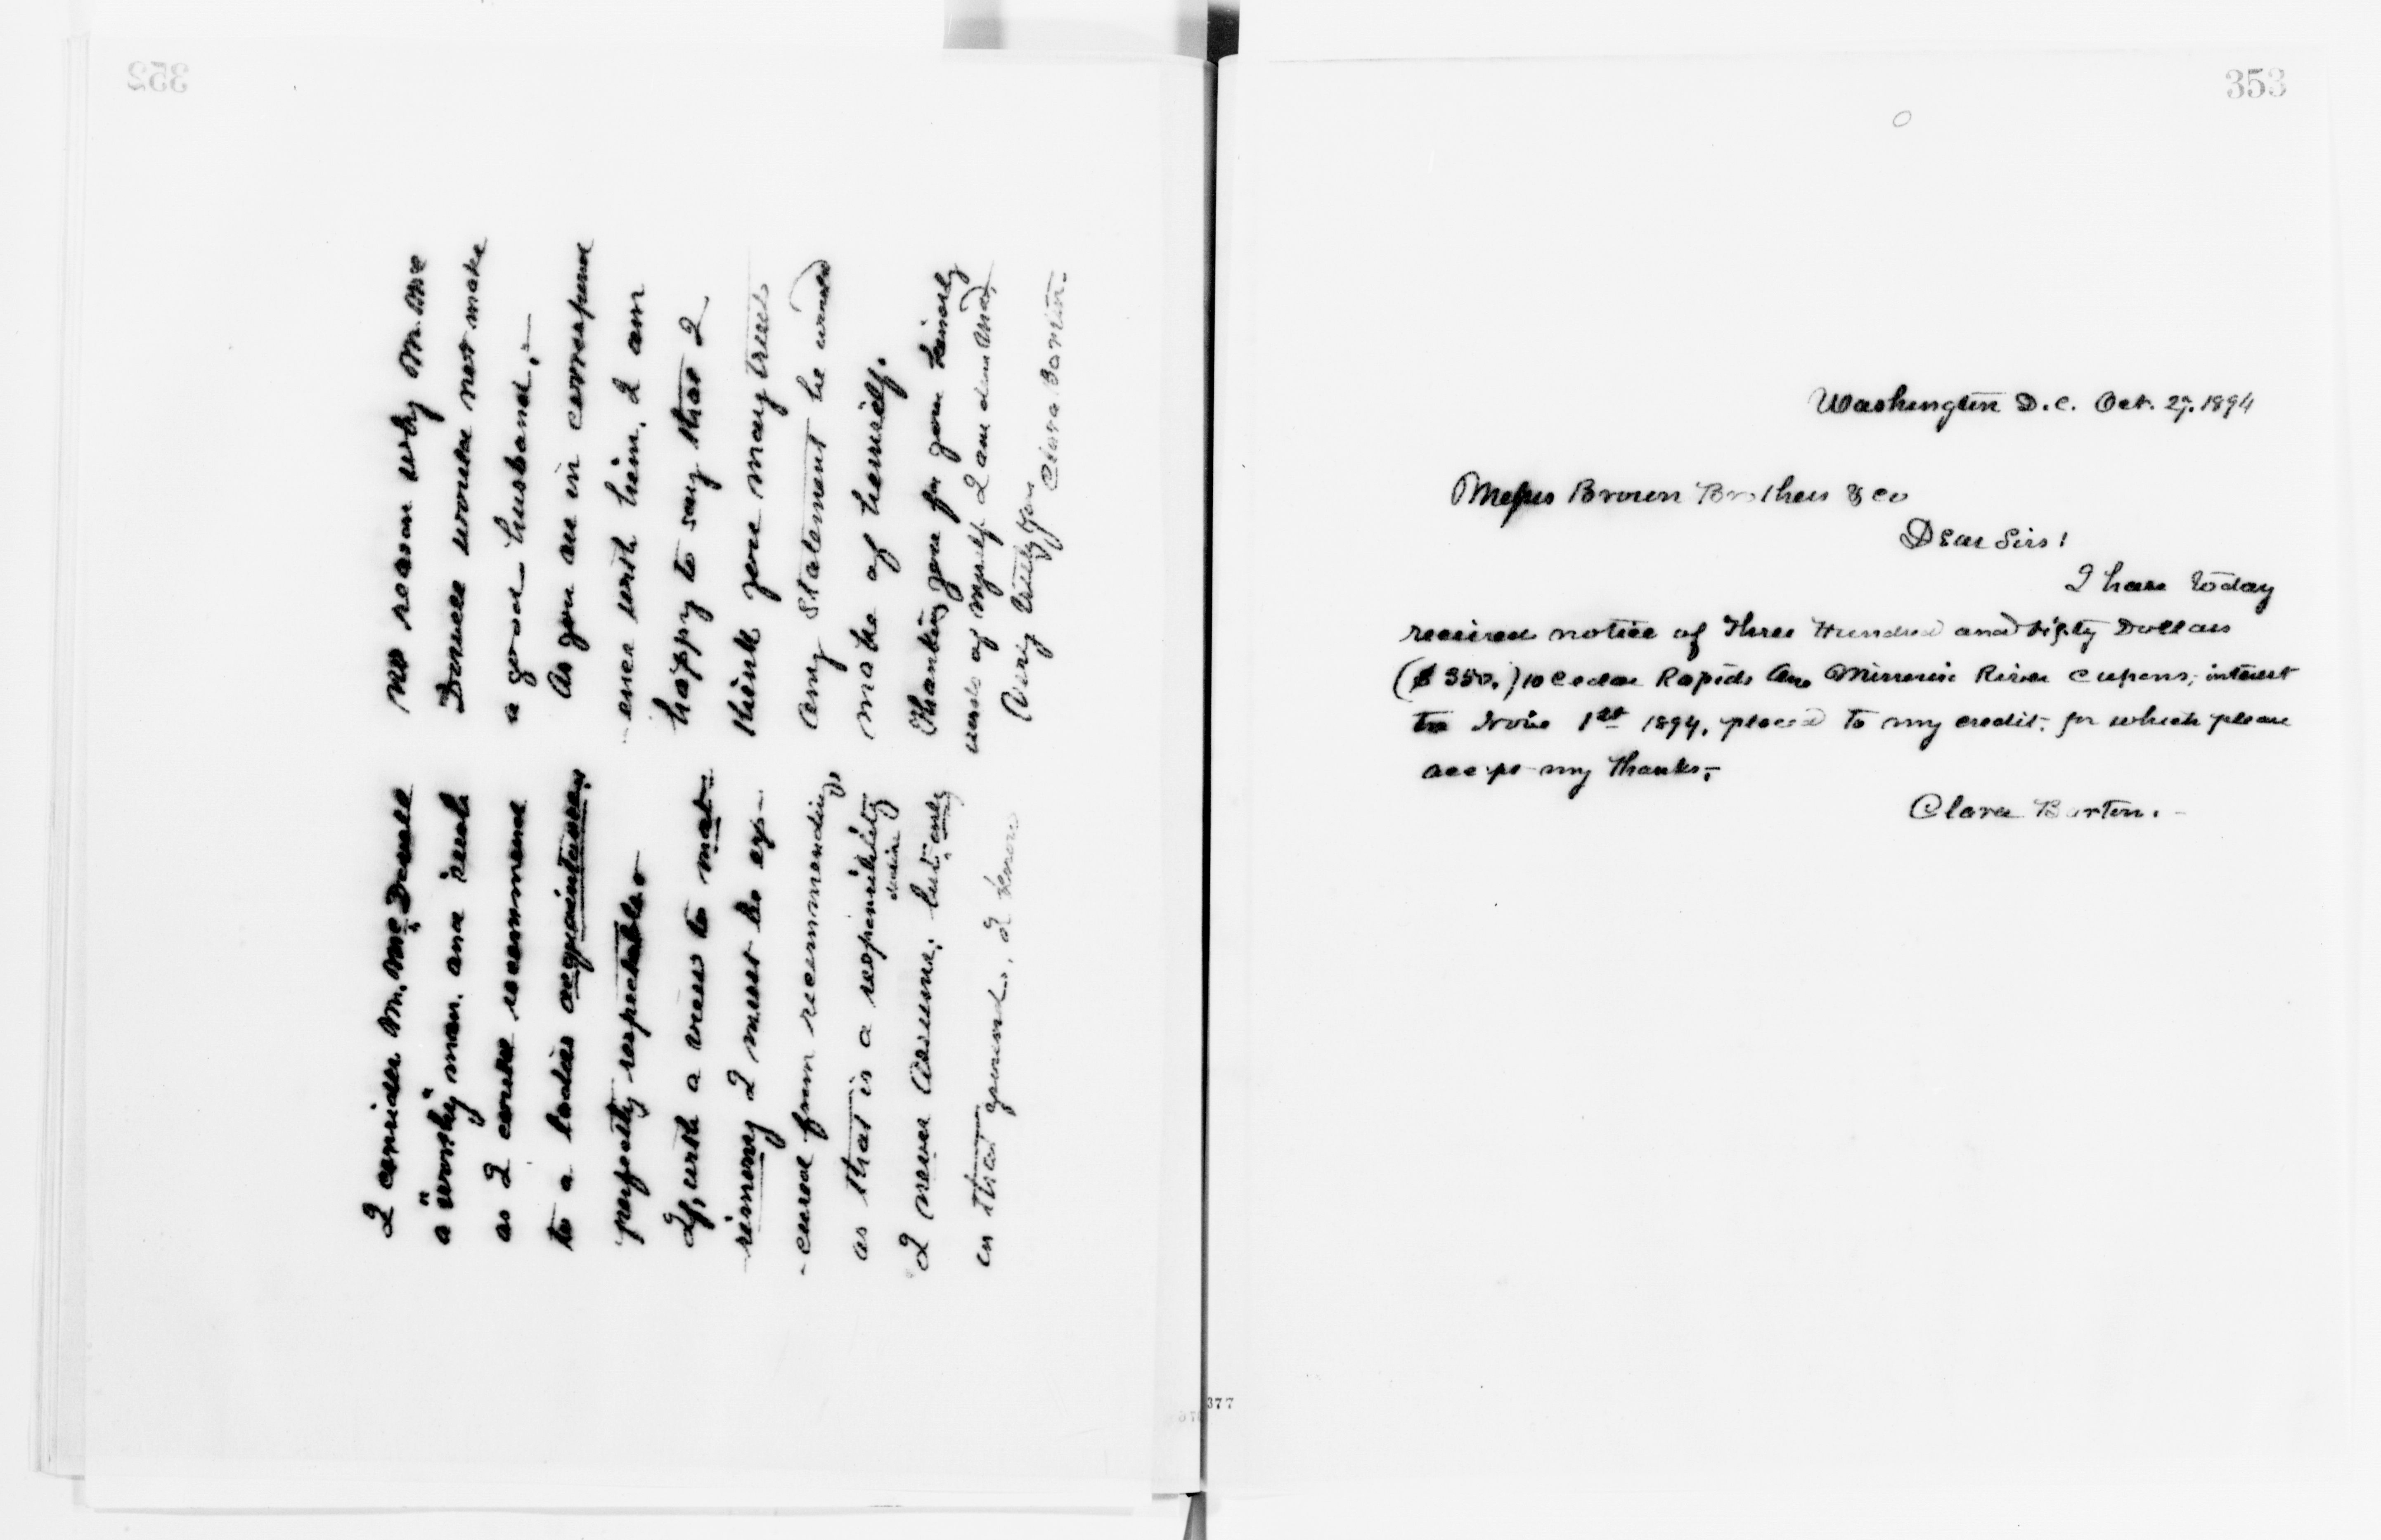 352
I consider Mr. McDowell
a "worthy" man, and such
as I could recommend
to a ladies acquaintance,
perfectly respectable.
If, with a view to mat-
rimony I must be ex-
-cused from recommending,
as that is a responsibility
desire
I never assume; but only
on that ground. I know
no reason why Mr. Mc
Dowell would not make
a good husband.—
As you are in correspond
ence with him, I am
happy to say that I
think you may trust
any statement he would
make of himself.
Thanking you for your kindly
words of myself I am dear Mad,
Very truly yours
Clara Barton.
353
Washington D.C. Oct. 27. 1894
Messrs Brown Brothers & Co
Dear Sirs!
I have today
received notice of Three Hundred and fifty Dollars
($350.) 10 Cedar Rapids and Missouri River cupons; interest
to Nov. 1st 1894, placed to my credit- for which please
accept my thanks,-
Clara Barton.-
377